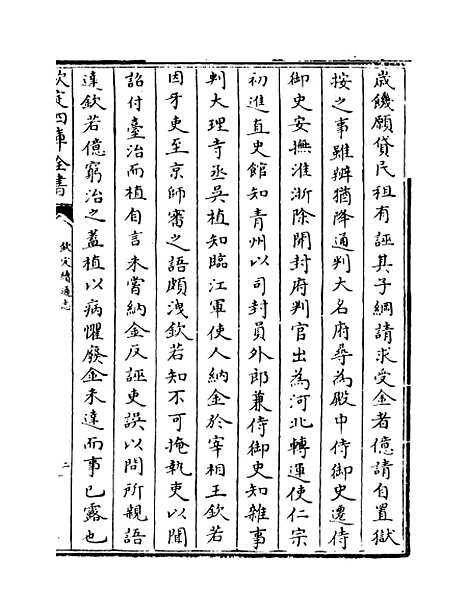 歳饑願貸民租有誣其子綱請求受金者億請自置獄
按之事雖辨猶降通判大名府尋為殿中侍御史遷侍
御史安撫淮浙除開封府判官出為河北轉運使仁宗
初進直史館知青州以司封員外郎兼侍御史知雜事
判大理寺丞吳植知臨江軍使人納金於宰相王欽若
因牙吏至京師審之語頗洩欽若知不可掩執吏以聞
詔付臺治而植自言未嘗納金反誣吏誤以問所親語
達欽若億窮治之蓋植以病懼廢金未達而事已露也
欽定四庫全書
欽定續通志
二